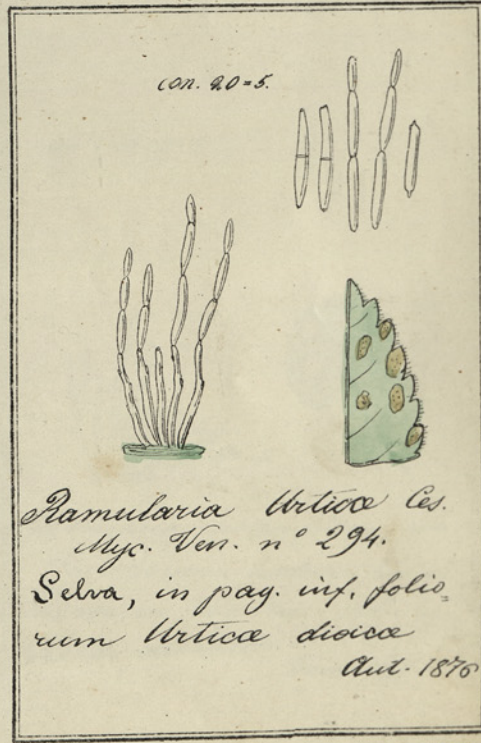 con. 20=5.
Ramularia Urticæ Ces.
Myc. Ven. nº 294.
Selva, in pag. inf. folio=
rum Urticæ dioicæ
Aut. 1876